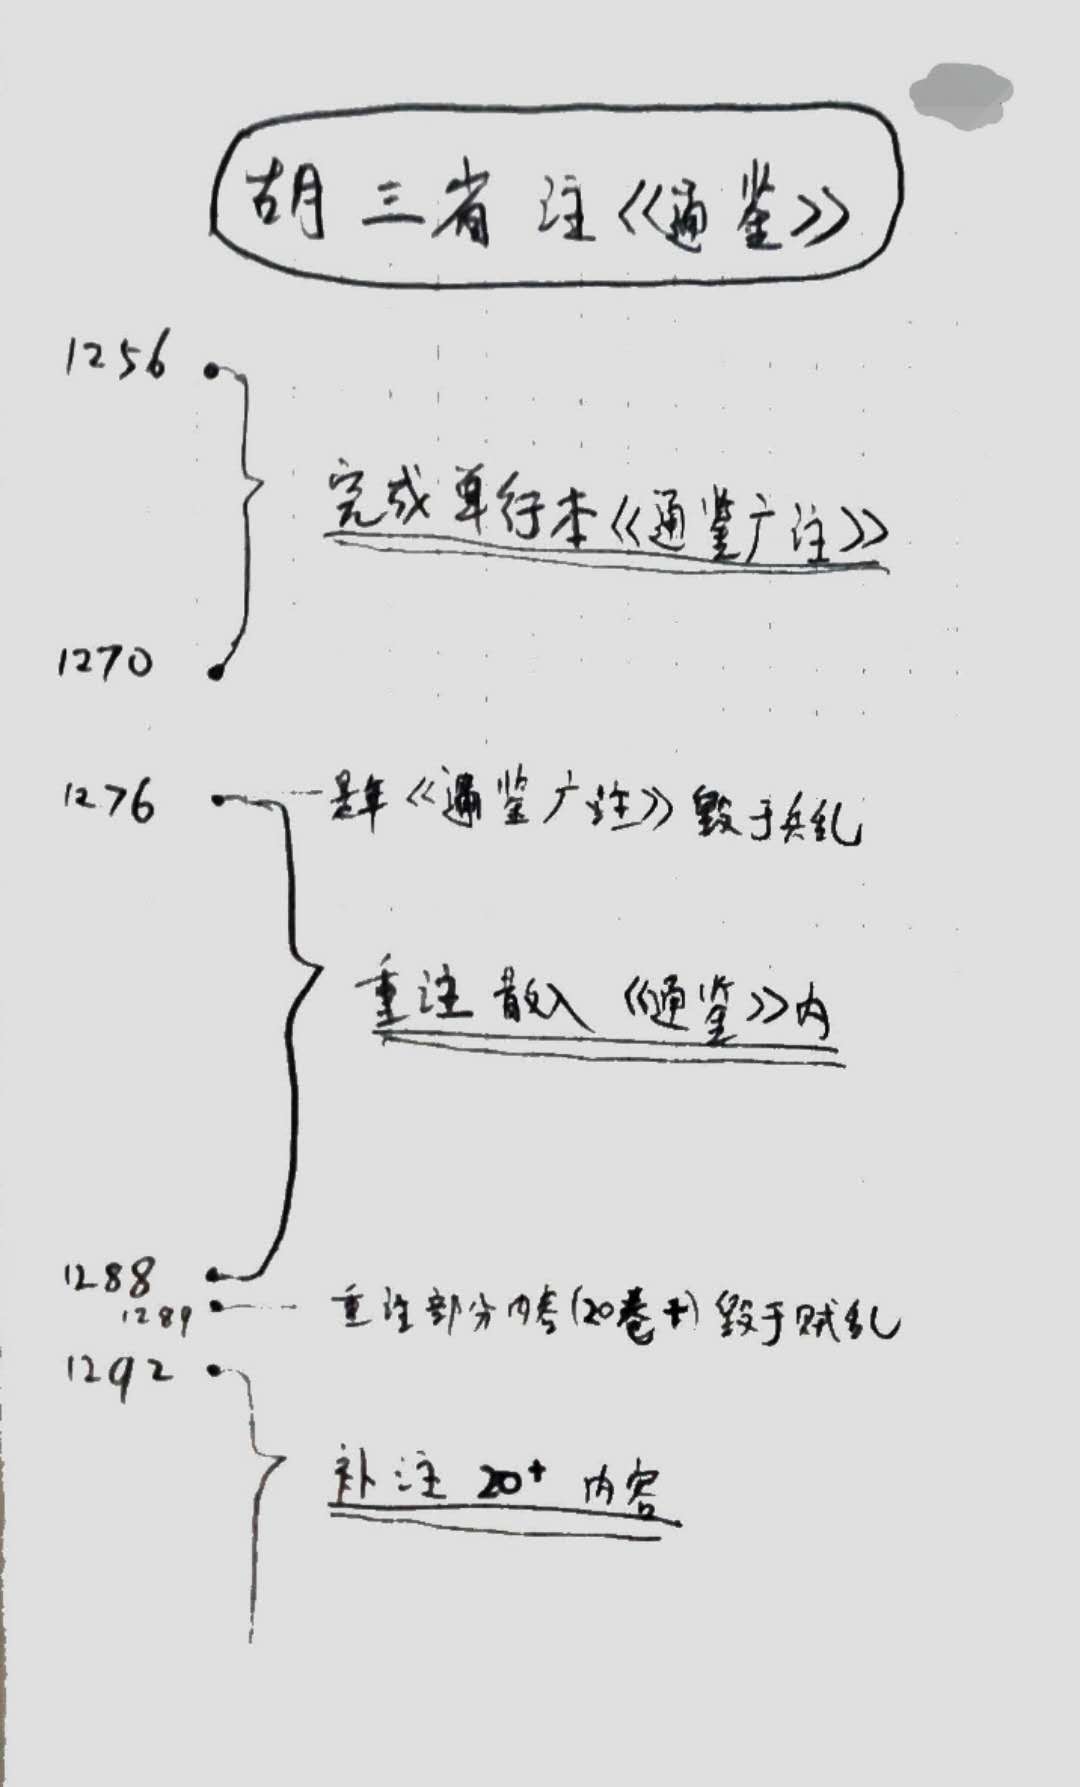 胡三省注《通鉴》
1256
完成单行本《通鉴广注》
1270
1276 是年《通鉴广注》毁于兵乱
重注散入《通鉴》内
1288
1289 重注部分内容(20卷+)毁于贼乱
1292
补注 20+ 内容